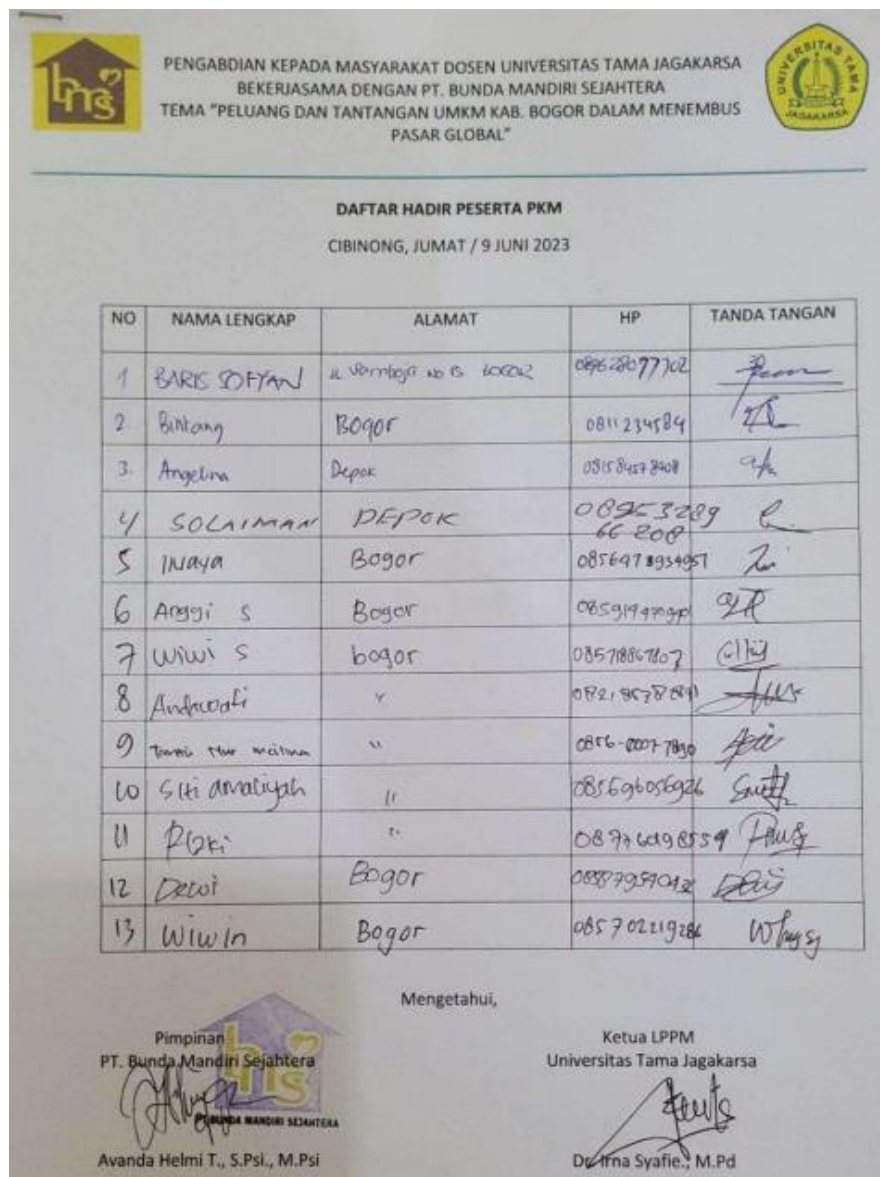 bms
PENGABDIAN KEPADA MASYARAKAT DOSEN UNIVERSITAS TAMA JAGAKARSA
BEKERJASAMA DENGAN PT. BUNDA MANDIRI SEJAHTERA
TEMA "PELUANG DAN TANTANGAN UMKM KAB. BOGOR DALAM MENEMBUS
PASAR GLOBAL"
UNIVERSITAS TAMA
JAGAKARSA
DAFTAR HADIR PESERTA PKM
CIBINONG, JUMAT / 9 JUNI 2023
NO NAMA LENGKAP ALAMAT HP TANDA TANGAN
1 BARIS SOFYAN No 15 BOGOR 089628077702
2. Bintang Bogor 0811234584
3. Angelina Depok
4 SOLAIMAN DEPOK 08953289
66 208
5 INaya Bogor
6 Anggi S Bogor
7 Wiwi S bogor 085718867807
8 "
9 "
10 Siti Amaliyah " 085696056926
11 Rizki "
12 Dewi Bogor
13 Wiwin Bogor 085702219286
Mengetahui,
Pimpinan
PT. Bunda Mandiri Sejahtera
bms
PT. BUNDA MANDIRI SEJAHTERA
Avanda Helmi T., S.Psi., M.Psi
Ketua LPPM
Universitas Tama Jagakarsa
Dr. Irna Syafie., M.Pd